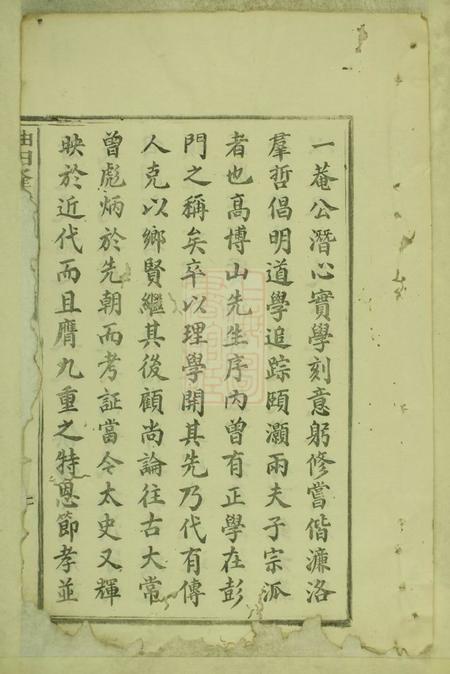 一菴公潛心實學刻意躬修嘗偕濂洛
羣哲倡明道學追踪頤灝兩夫子宗派
者也高博山先生序內曾有正學在彭
門之稱矣卒以理學開其先乃代有傳
人克以鄉賢繼其後顧尚論往古大常
曾彪炳於先朝而考証當今太史又輝
映於近代而且膺九重之特恩節孝並